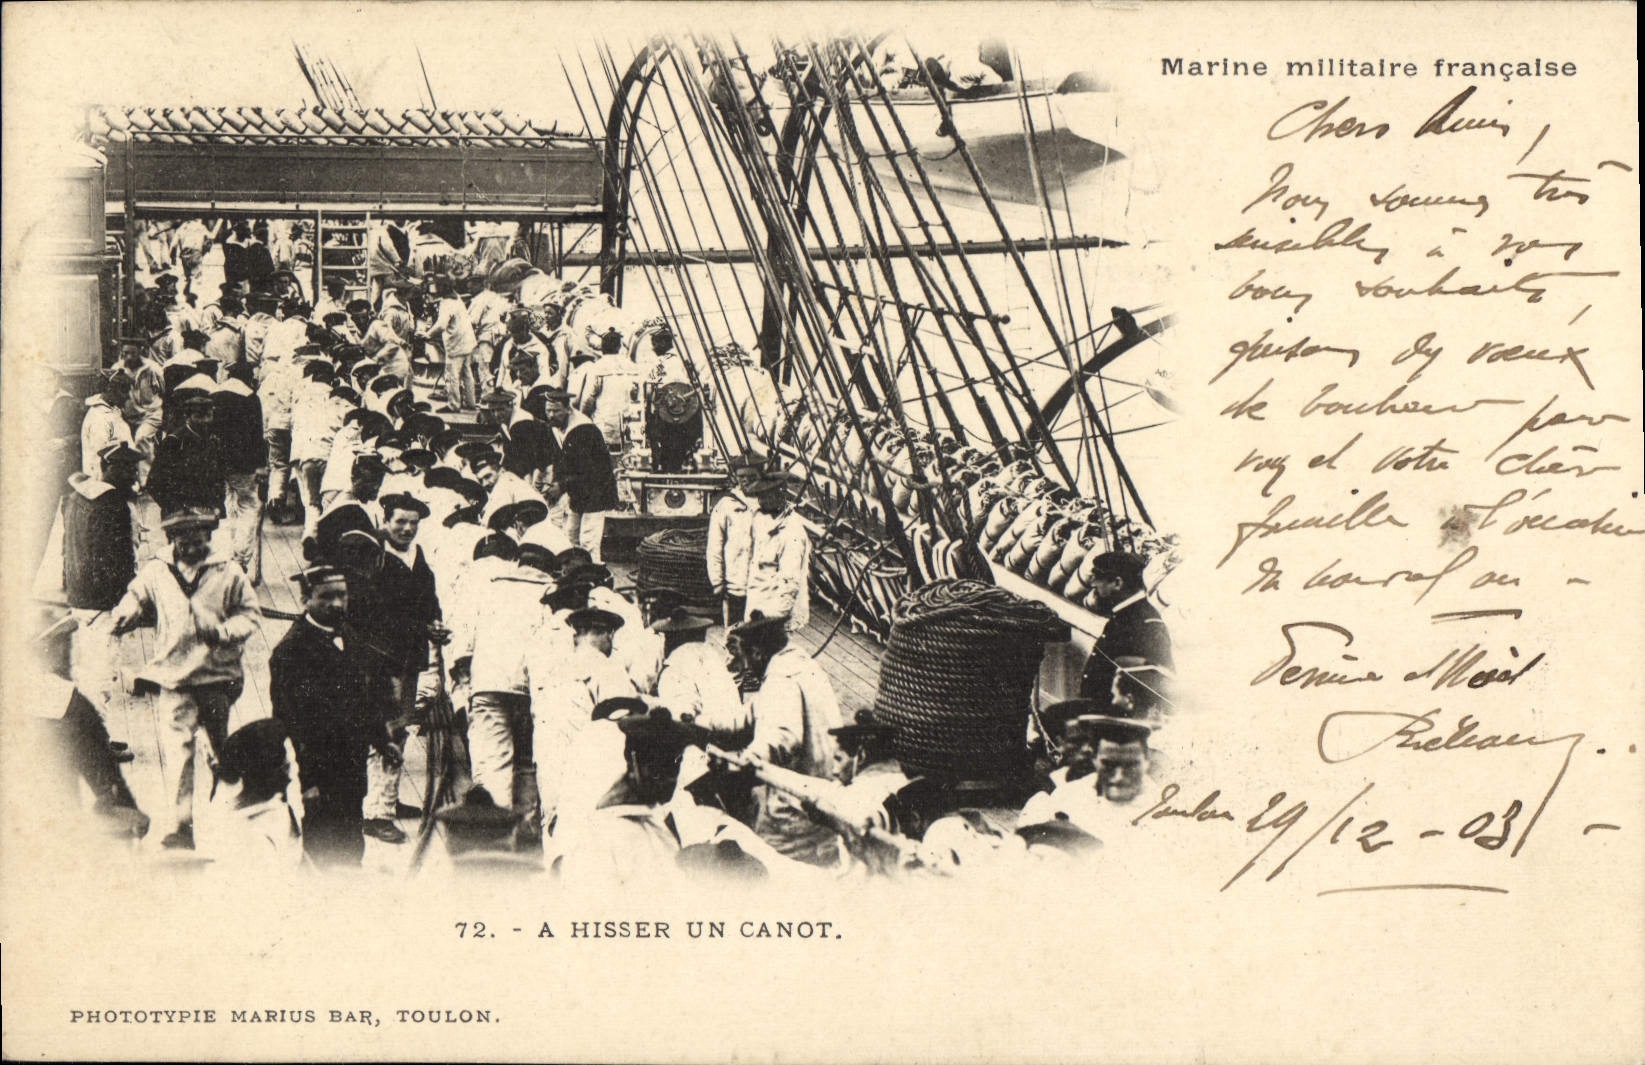 Marine militaire française
Chers Amis,
Nous sommes très
sensibles à vos
bons souhaits,
faisons des vœux
de bonheur pour
vous et votre chère
famille à l'occasion
du nouvel an -
Toulon 29/12 - 03 -
72. - A HISSER UN CANOT.
PHOTOTYPIE MARIUS BAR, TOULON.